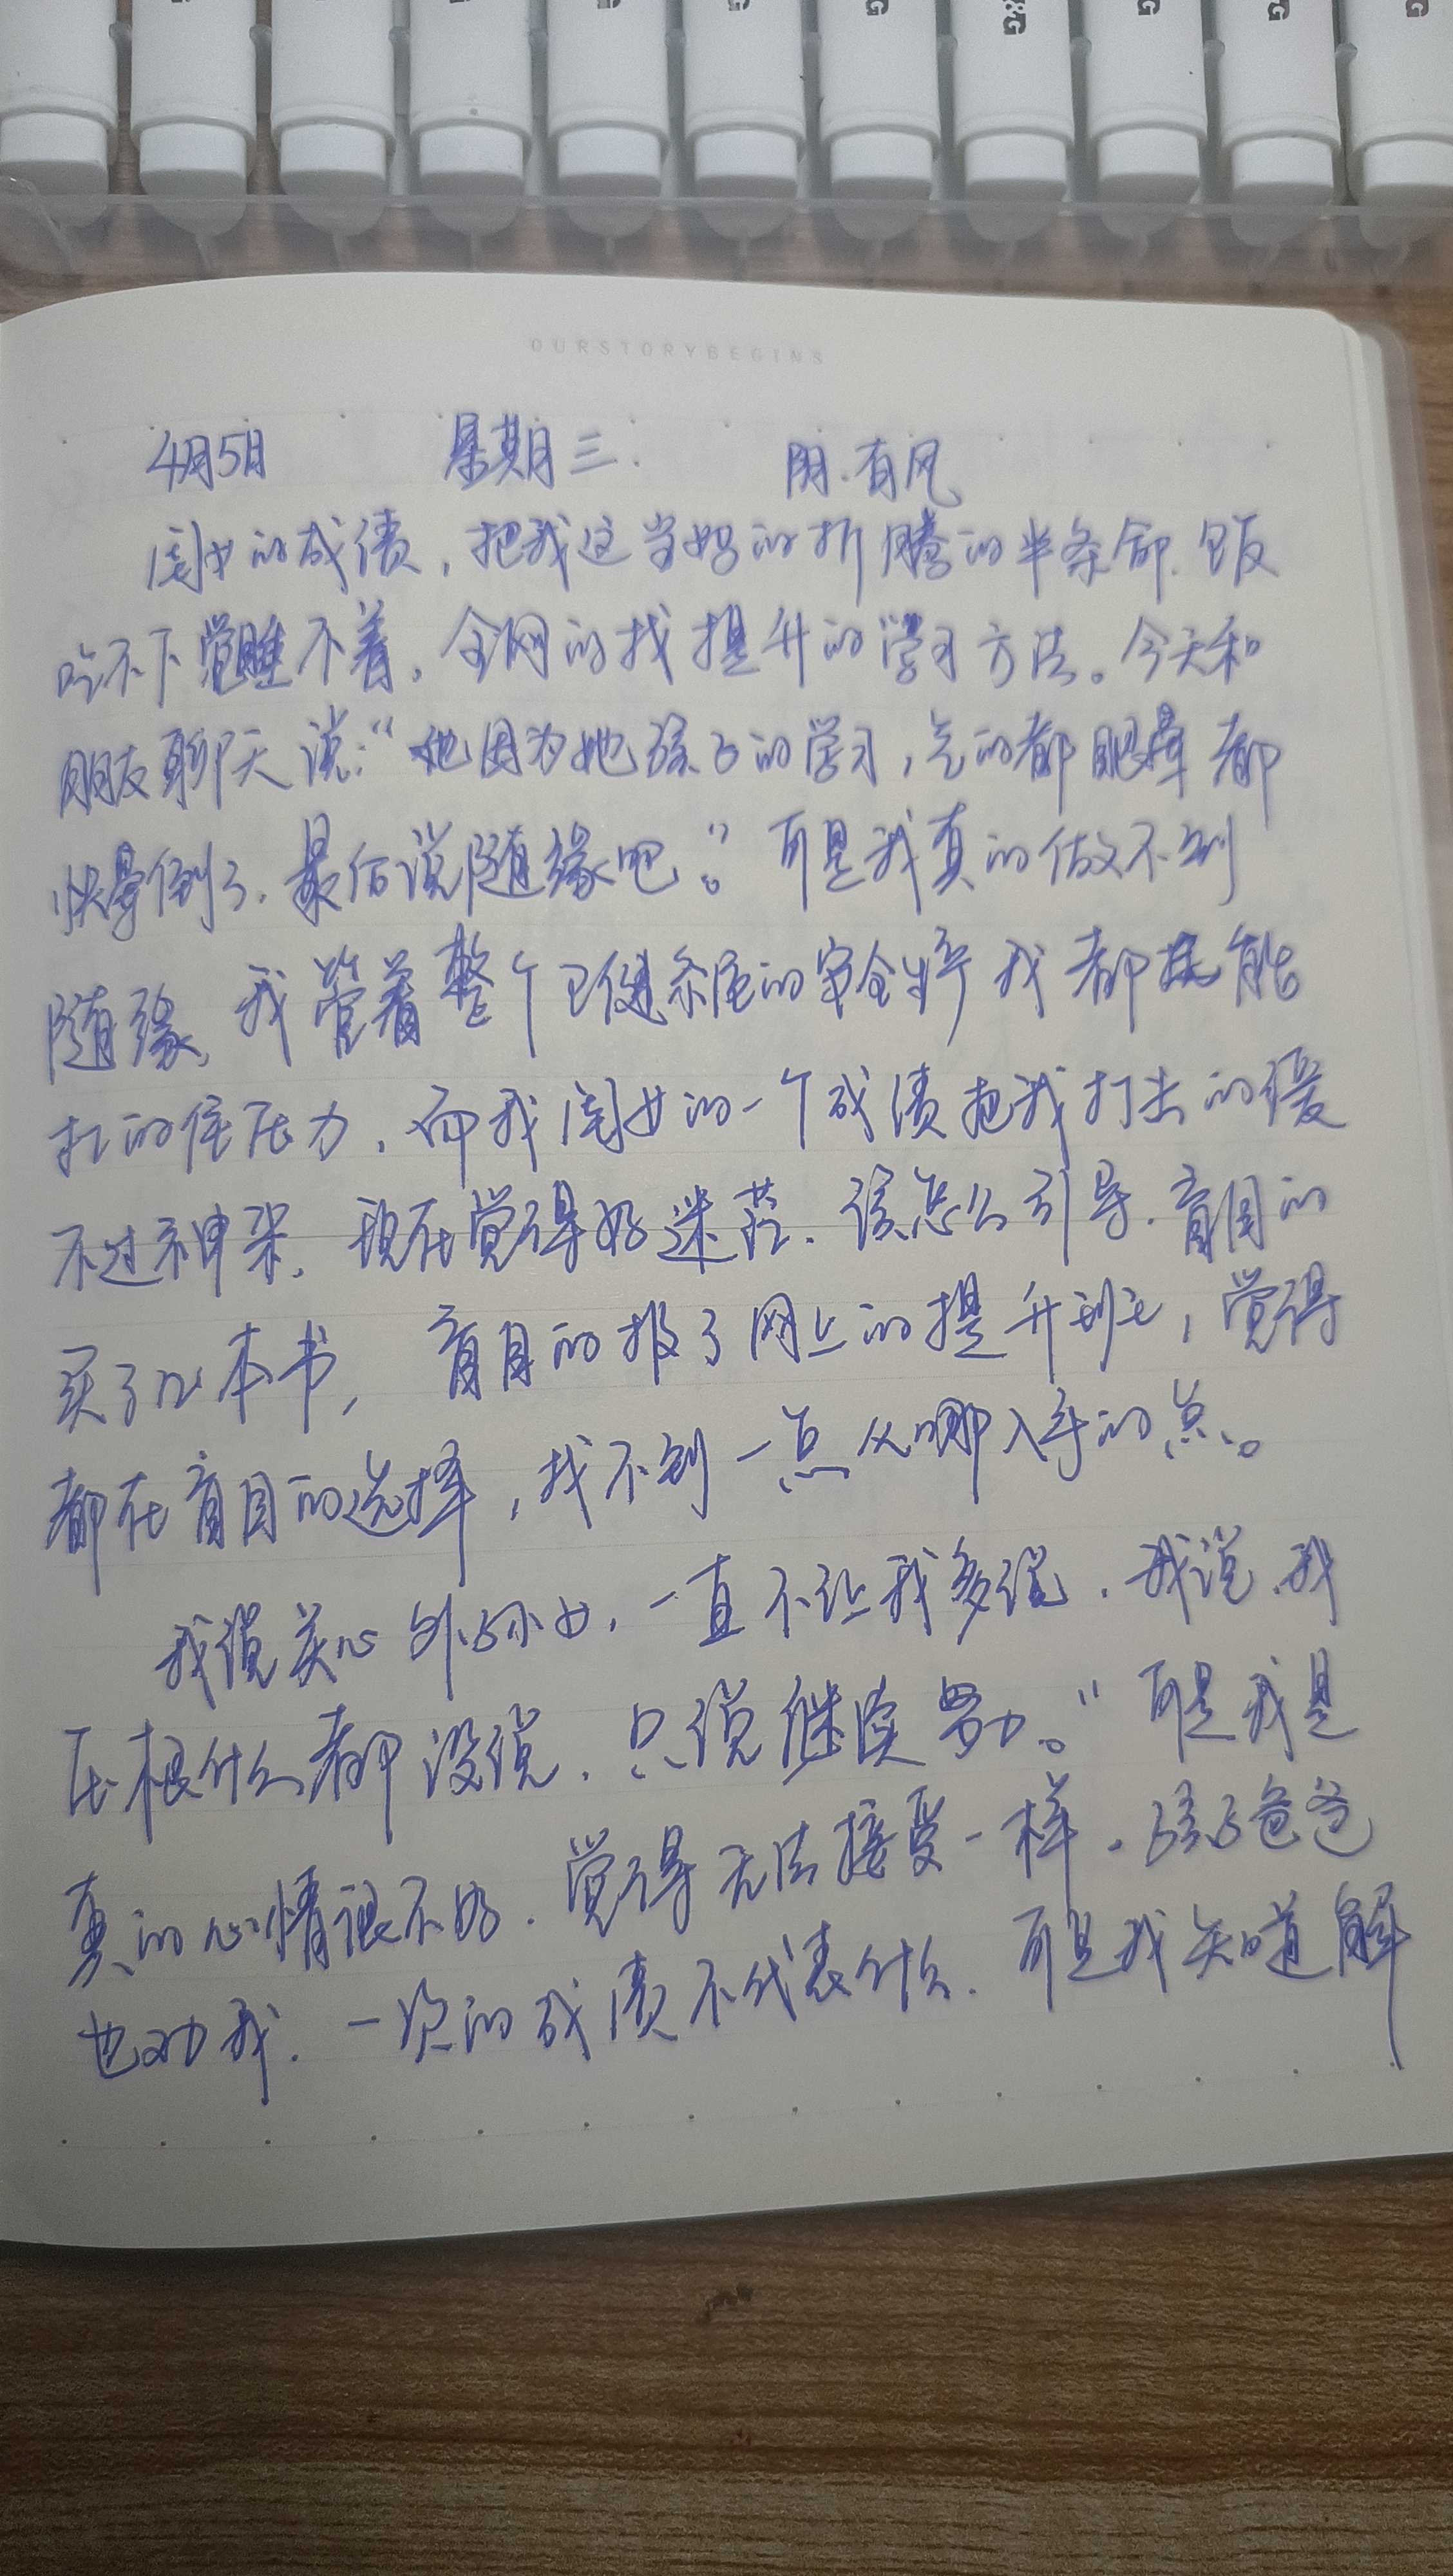 G
G
G
G
&G
G
G
G
OURSTORYBEGINS
4月5日 星期三. 阴.有风
闺女的成绩,把我这当妈的折腾的半条命.饭
吃不下觉睡不着,全网的找提升的学习方法。今天和
朋友聊天说:“她因为她孩子的学习,气的都眼晕都
快晕倒了,最后说随缘吧。”可是我真的做不到
随缘,我管着整个卫健系统的安全我都能
扛的住压力,而我闺女的一个成绩把我打击的缓
不过神来,现在觉得好迷茫.该怎么引导.盲目的
买了几本书,盲目的报了网上的提升班,觉得
都在盲目的选择,找不到一点从哪入手的点。
我说关心外孙女,一直不让我多说.我说.我
压根什么都没说.只说继续努力。”可是我是
真的心情很不好.觉得无法接受一样.孩子爸爸
也劝我.一次的成绩不代表什么.可是我知道解